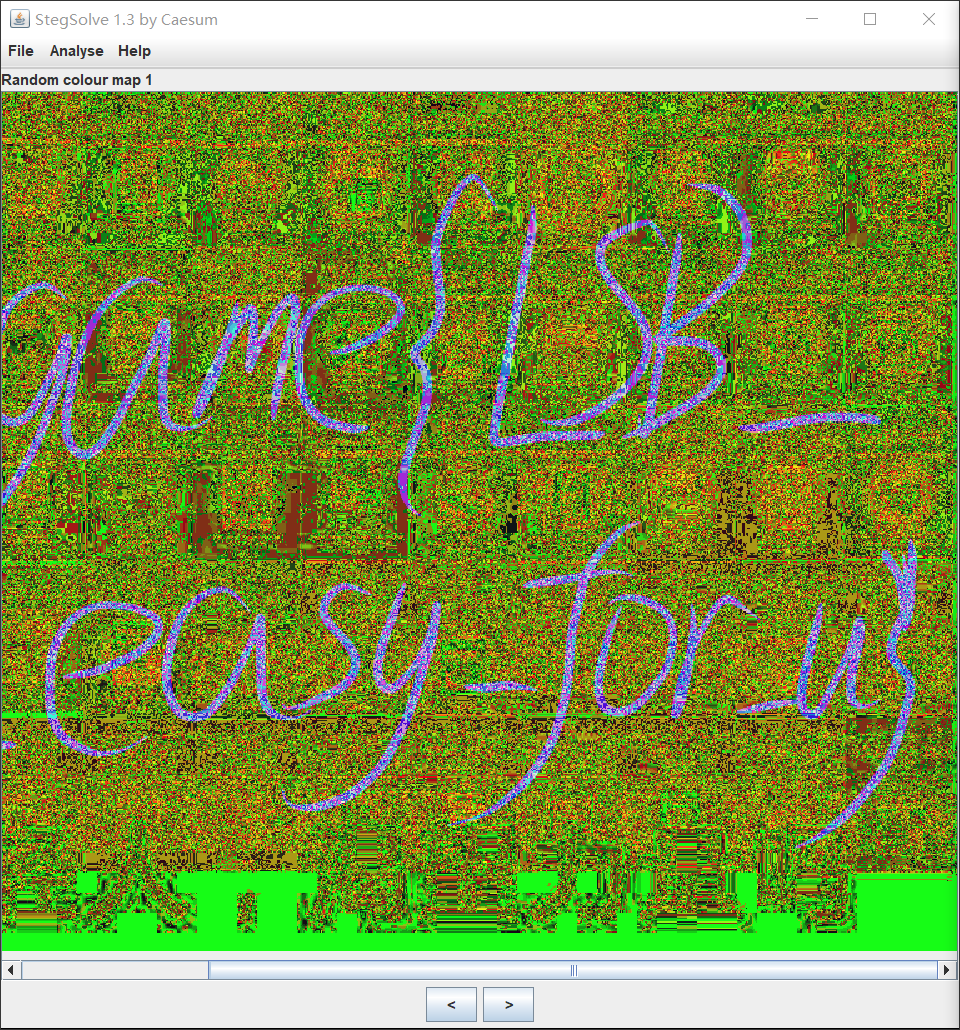 StegSolve 1.3 by Caesum
File Analyse Help
Random colour map 1
game{LSB_
easy_for_u}
< >